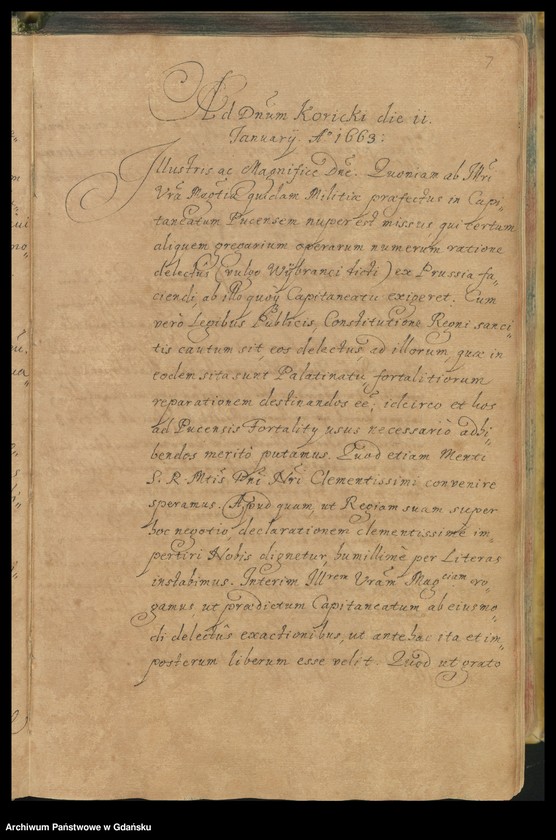 7
Ad Dnum Koricki die ii.
Januarij Ao 1663:
Illustris ac Magnifice Dne. Quoniam ab Illri
Vra Mgntia quidam Militiæ præfectus in Capi„
taneatum Pucensem nuper est missus, qui certam
aliquem operarum numerum ratione
delectus (vulgo Wÿbranci dicti) ex Prussia fa„
ciendi, ab illo quoq Capitaneatu exigeret. Cum
verò Legibus Publicis, Constitutione Regni sanci„
tis cautum sit, eos delectus ad illorum, quæ in
eodem sita sunt Palatinatu fortalitiorum
reparationem destinandos eé, idcirco et hos
ad Pucensis Fortalitÿ usus necessariò adhi„
bendos meritò putamus. Quod etiam Menti
S. R. Mtis Dni Nri Clementissimi convenire
speramus. Apud quam, ut Regiam suam super
hoc negotio declarationem clementissimè im„
pertiri Nobis dignetur, humillimè per Literas
instabimus. Interim Illrem Vram Magciam ro„
gamus, ut prædictum Capitaneatum ab eiusmo„
di delectûs exactionibus, ut antehac ita et im„
posterum liberum esse velit. Quod ut grato
Archiwum Państwowe w Gdańsku